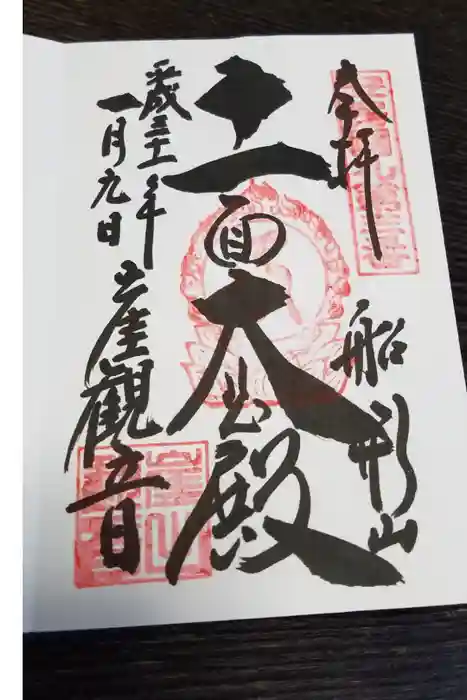 奉拝
船形山
十一面大悲殿
平成三十一年
一月九日
崖觀音